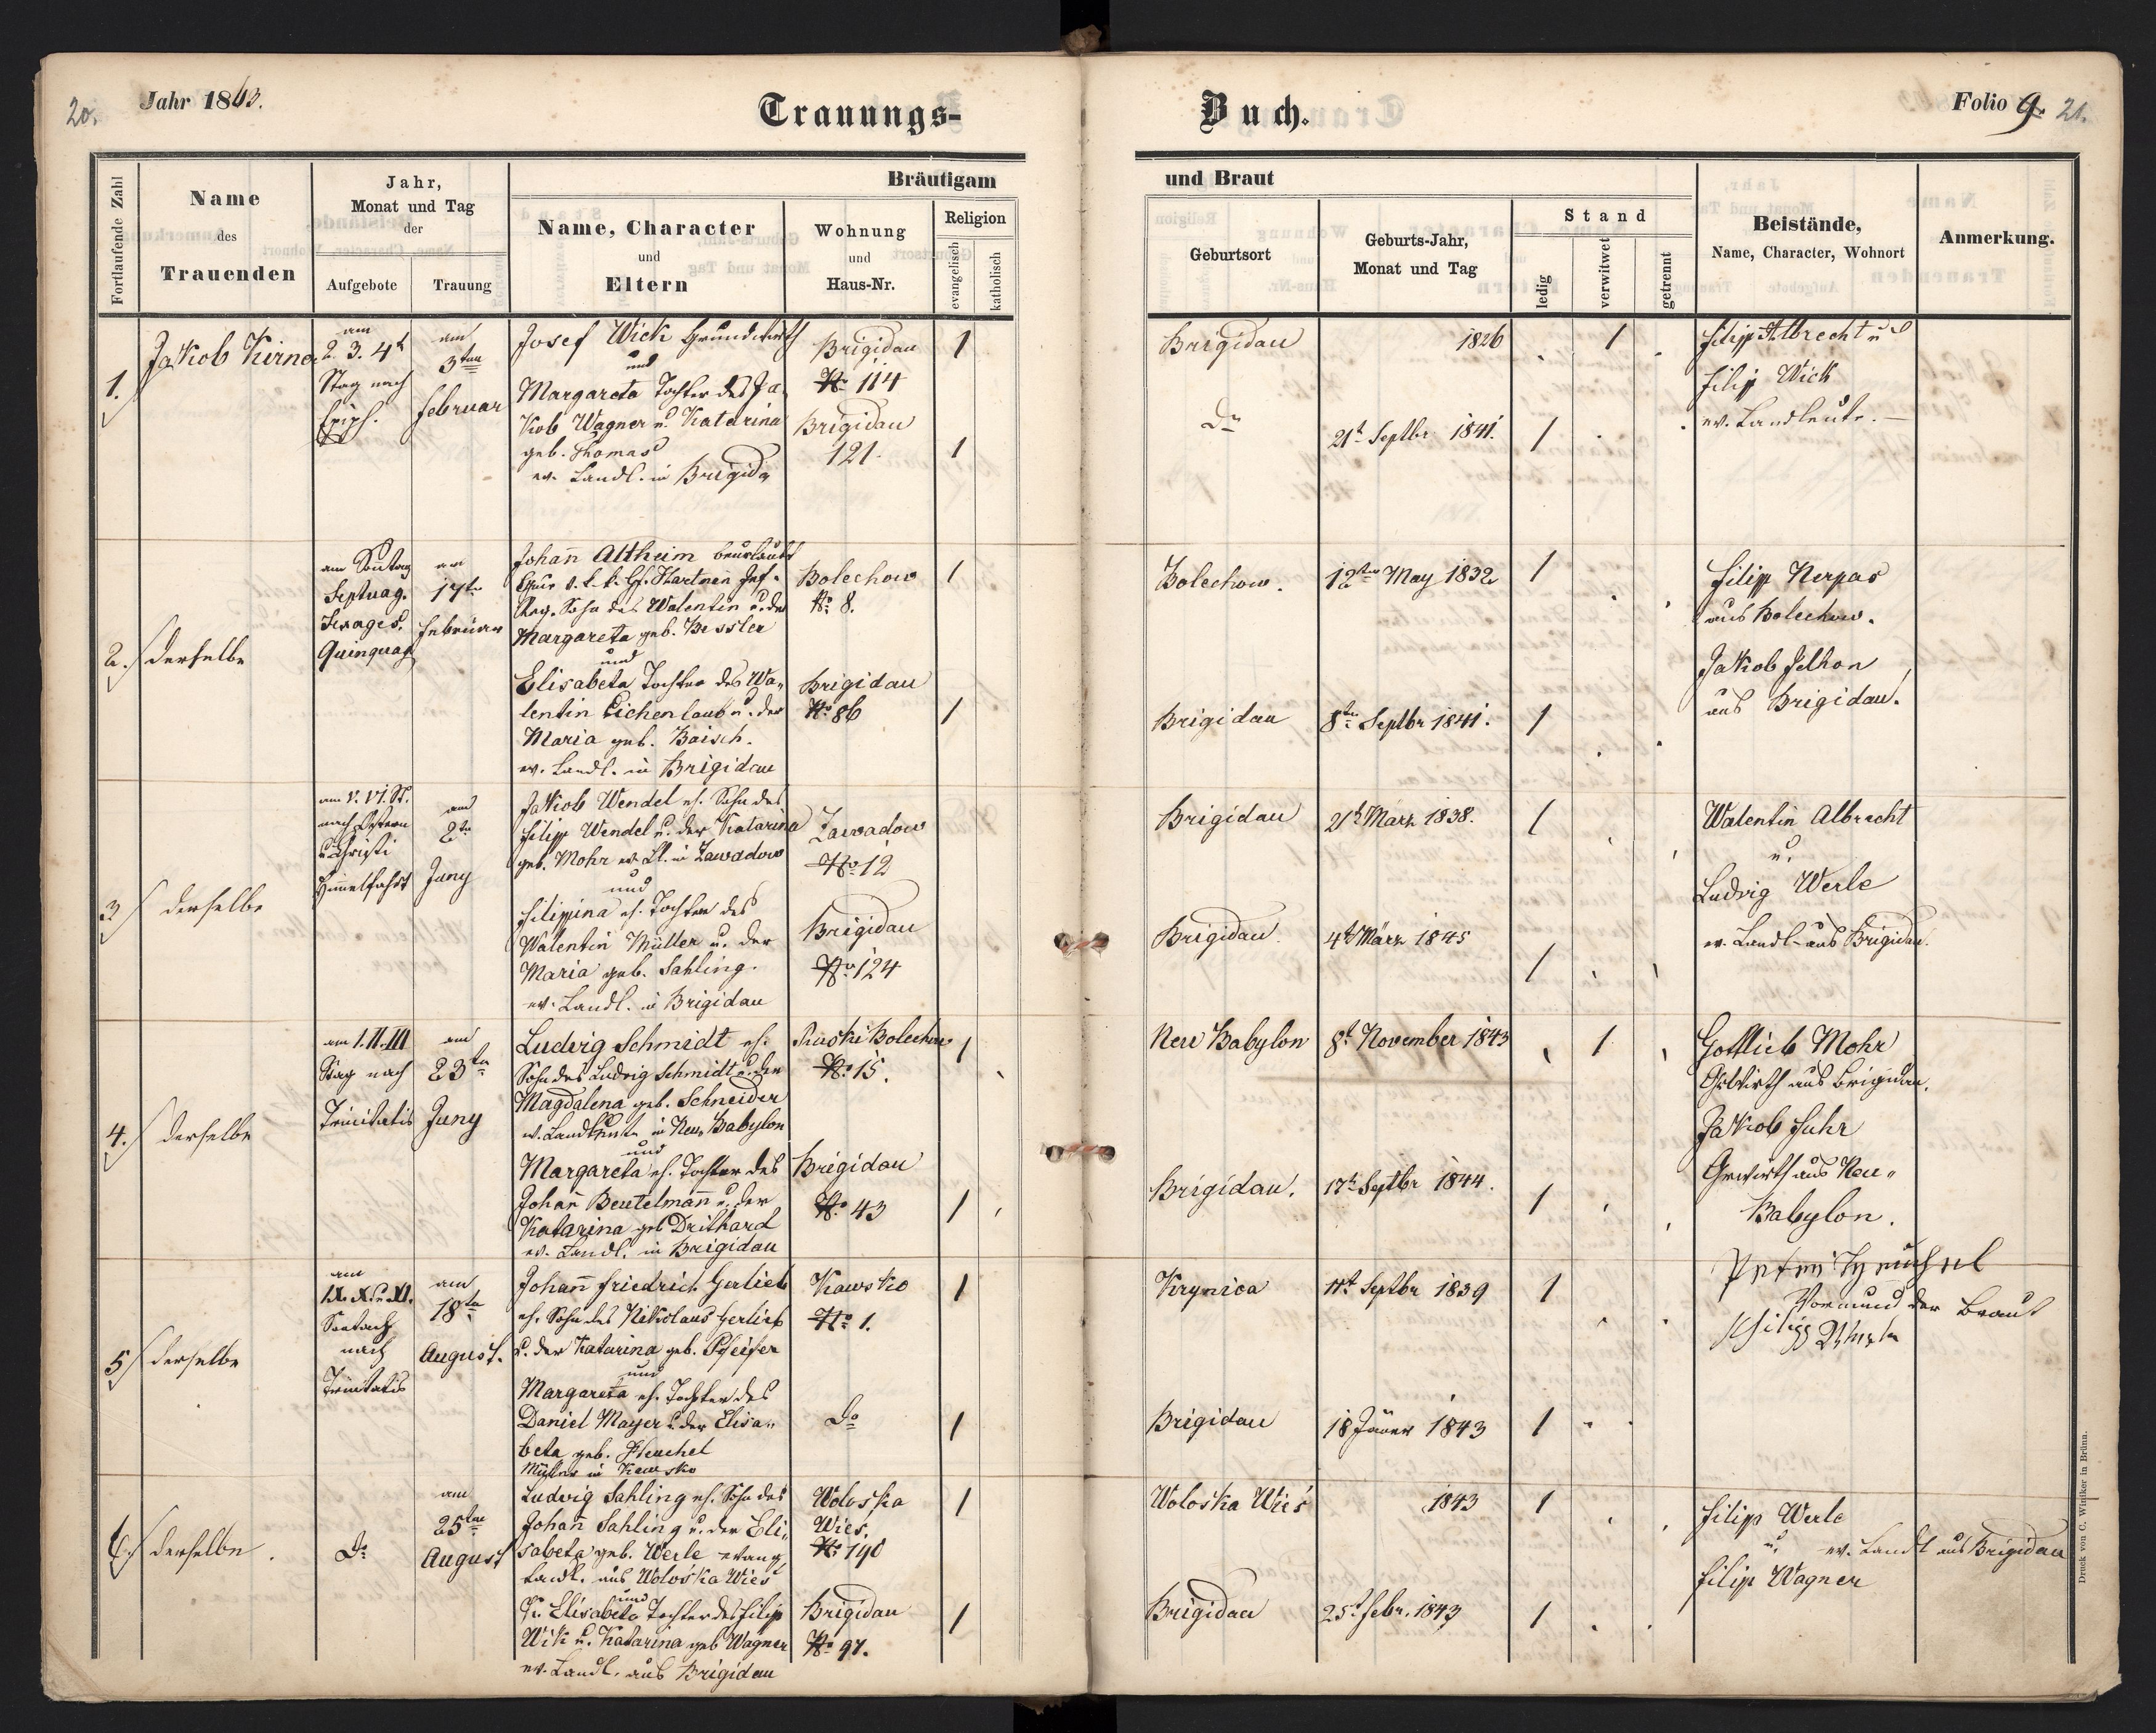 20.
Jahr 1863.
Trauungs-
Buch.
Folio 9.
21.
Fortlaufende Zahl
Name
des
Trauenden
Jahr,
Monat und Tag
der
Aufgebote
Trauung
Bräutigam
Name, Character
und
Eltern
Wohnung
und
Haus-Nr.
Religion
evangelisch
katholisch
und Braut
Geburtsort
Geburts-Jahr,
Monat und Tag
Stand
ledig
verwitwet
getrennt
Beistände,
Name, Character, Wohnort
Anmerkung.
1.
Jakob Kirne
am
2. 3. 4t
Stag nach
Epiph.
am
3ten
Februar
Josef Wick Grundwirth
und
Margareta Tochter des Ja-
kob Wagner u. Katarina
geb. Thomas
ev. Landl. in Brigida
Brigidau
No 114
Brigidau
121.
1
1
Brigidau
1826
1
Do
21t Septbr 1841.
1
Filip Albrecht u
Filip Wick
ev. Landleute.
2.
derselbe
am Sontag
Septuag.
Sexages.
Quinquag
am
17te
Februar
Johan̄ Altheim beurlaubt
Reg. Sohn des Walentin u. der
Margareta geb. Bessler
und
Elisabeta Tochter des Wa„
lentin Eichenlaub u. der
Maria geb. Baisch.
ev. Landl. in Brigidau
Bolechow
No 8.
Brigidau
No 86
1
1
Bolechow.
12ten May 1832
1
Brigidau
8te Septbr 1841.
1
Filip Nerpas
aus Bolechow.
Jakob Jelhon
aus Brigidau.
3
derselbe
am V. VI. St.
nach Ostern
u Christi
Him̄elfahrt
am
2te
Juny
Jakob Wendel eh. Sohn des
Filipp Wendel u. der Katarina
geb. Mohr ev. Ll. in Zawadow
und
Filippina eh. Tochter des
Walentin Müller u. der
Maria geb. Sahling.
ev. Landl. in Brigidau
Zawadow
No 12
Brigidau
No 124
Brigidau
21t März 1838.
1
Brigidau.
4t März 1845
1
Walentin Albrecht
u.
Ludvig Werle
ev. Landl. aus Brigidau.
4.
derselbe
am I. II. III
Stag nach
Trinitatis
am
23te
Juny
Ludvig Schmidt eh.
Sohn des Ludvig Schmidt u. der
Magdalena geb. Schneider
ev. Landleute in Neu Babylon
und
Margareta eh. Tochter des
Johan̄ Beutelman̄ u. der
Katarina geb Drilhard
ev. Landl. in Brigidau
Ruski Bolechow
No 15.
Brigidau
No 43
1
1
Neu Babylon
8t November 1843
1
Brigidau.
17t Septbr 1844.
1
Gottlieb Mohr
Grwirth aus Brigidau.
Jakob Fuhr
Grwirth aus Neu„
Babylon.
5
derselbe
am
IX. X. u XI.
Sontach
nach
Trinitatis
am
18te
August.
Johan̄ Friedrich Gerlieb
eh. Sohn des Nikolaus Gerlieb
u. der Katarina geb. Pfeifer
und
Margareta eh. Tochter des
Daniel Mayer u der Elisa„
beta geb. Heuchel
Müller in Kawsko
Kawsko
No 1.
Do
1
1
Krynica
11t Septbr 1839
1
Brigidau
18 Jäner 1843
1
Vormund der Braut
6.
derselbe.
Do
am
25ten
August
Ludvig Sahling eh. Sohn des
Johan̄ Sahling u. der Eli„
sabeta geb. Werle evang
Landl. aus Woloska Wieś
und
Elisabeta Tochter des Filip
Wik u. Katarina geb Wagner
ev. Landl. aus Brigidau
Woloska
Wies.
No 190
Brigidau
No 97.
1
1
Woloska Wieś
1843
1
Brigidau
25t Febr. 1843
1
Filip Werle
u. ev. Landl aus Brigidau
Filip Wagner
Druck von C. Winiker in Brünn.